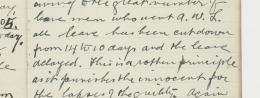 owing to the great number of
leave men who went A.W.L.
all leave has been cut down
from 14 to 10 days and the leave
delayed. This is a rotten principle
as it punishes the innocent for
the lapses of the guilty. Again